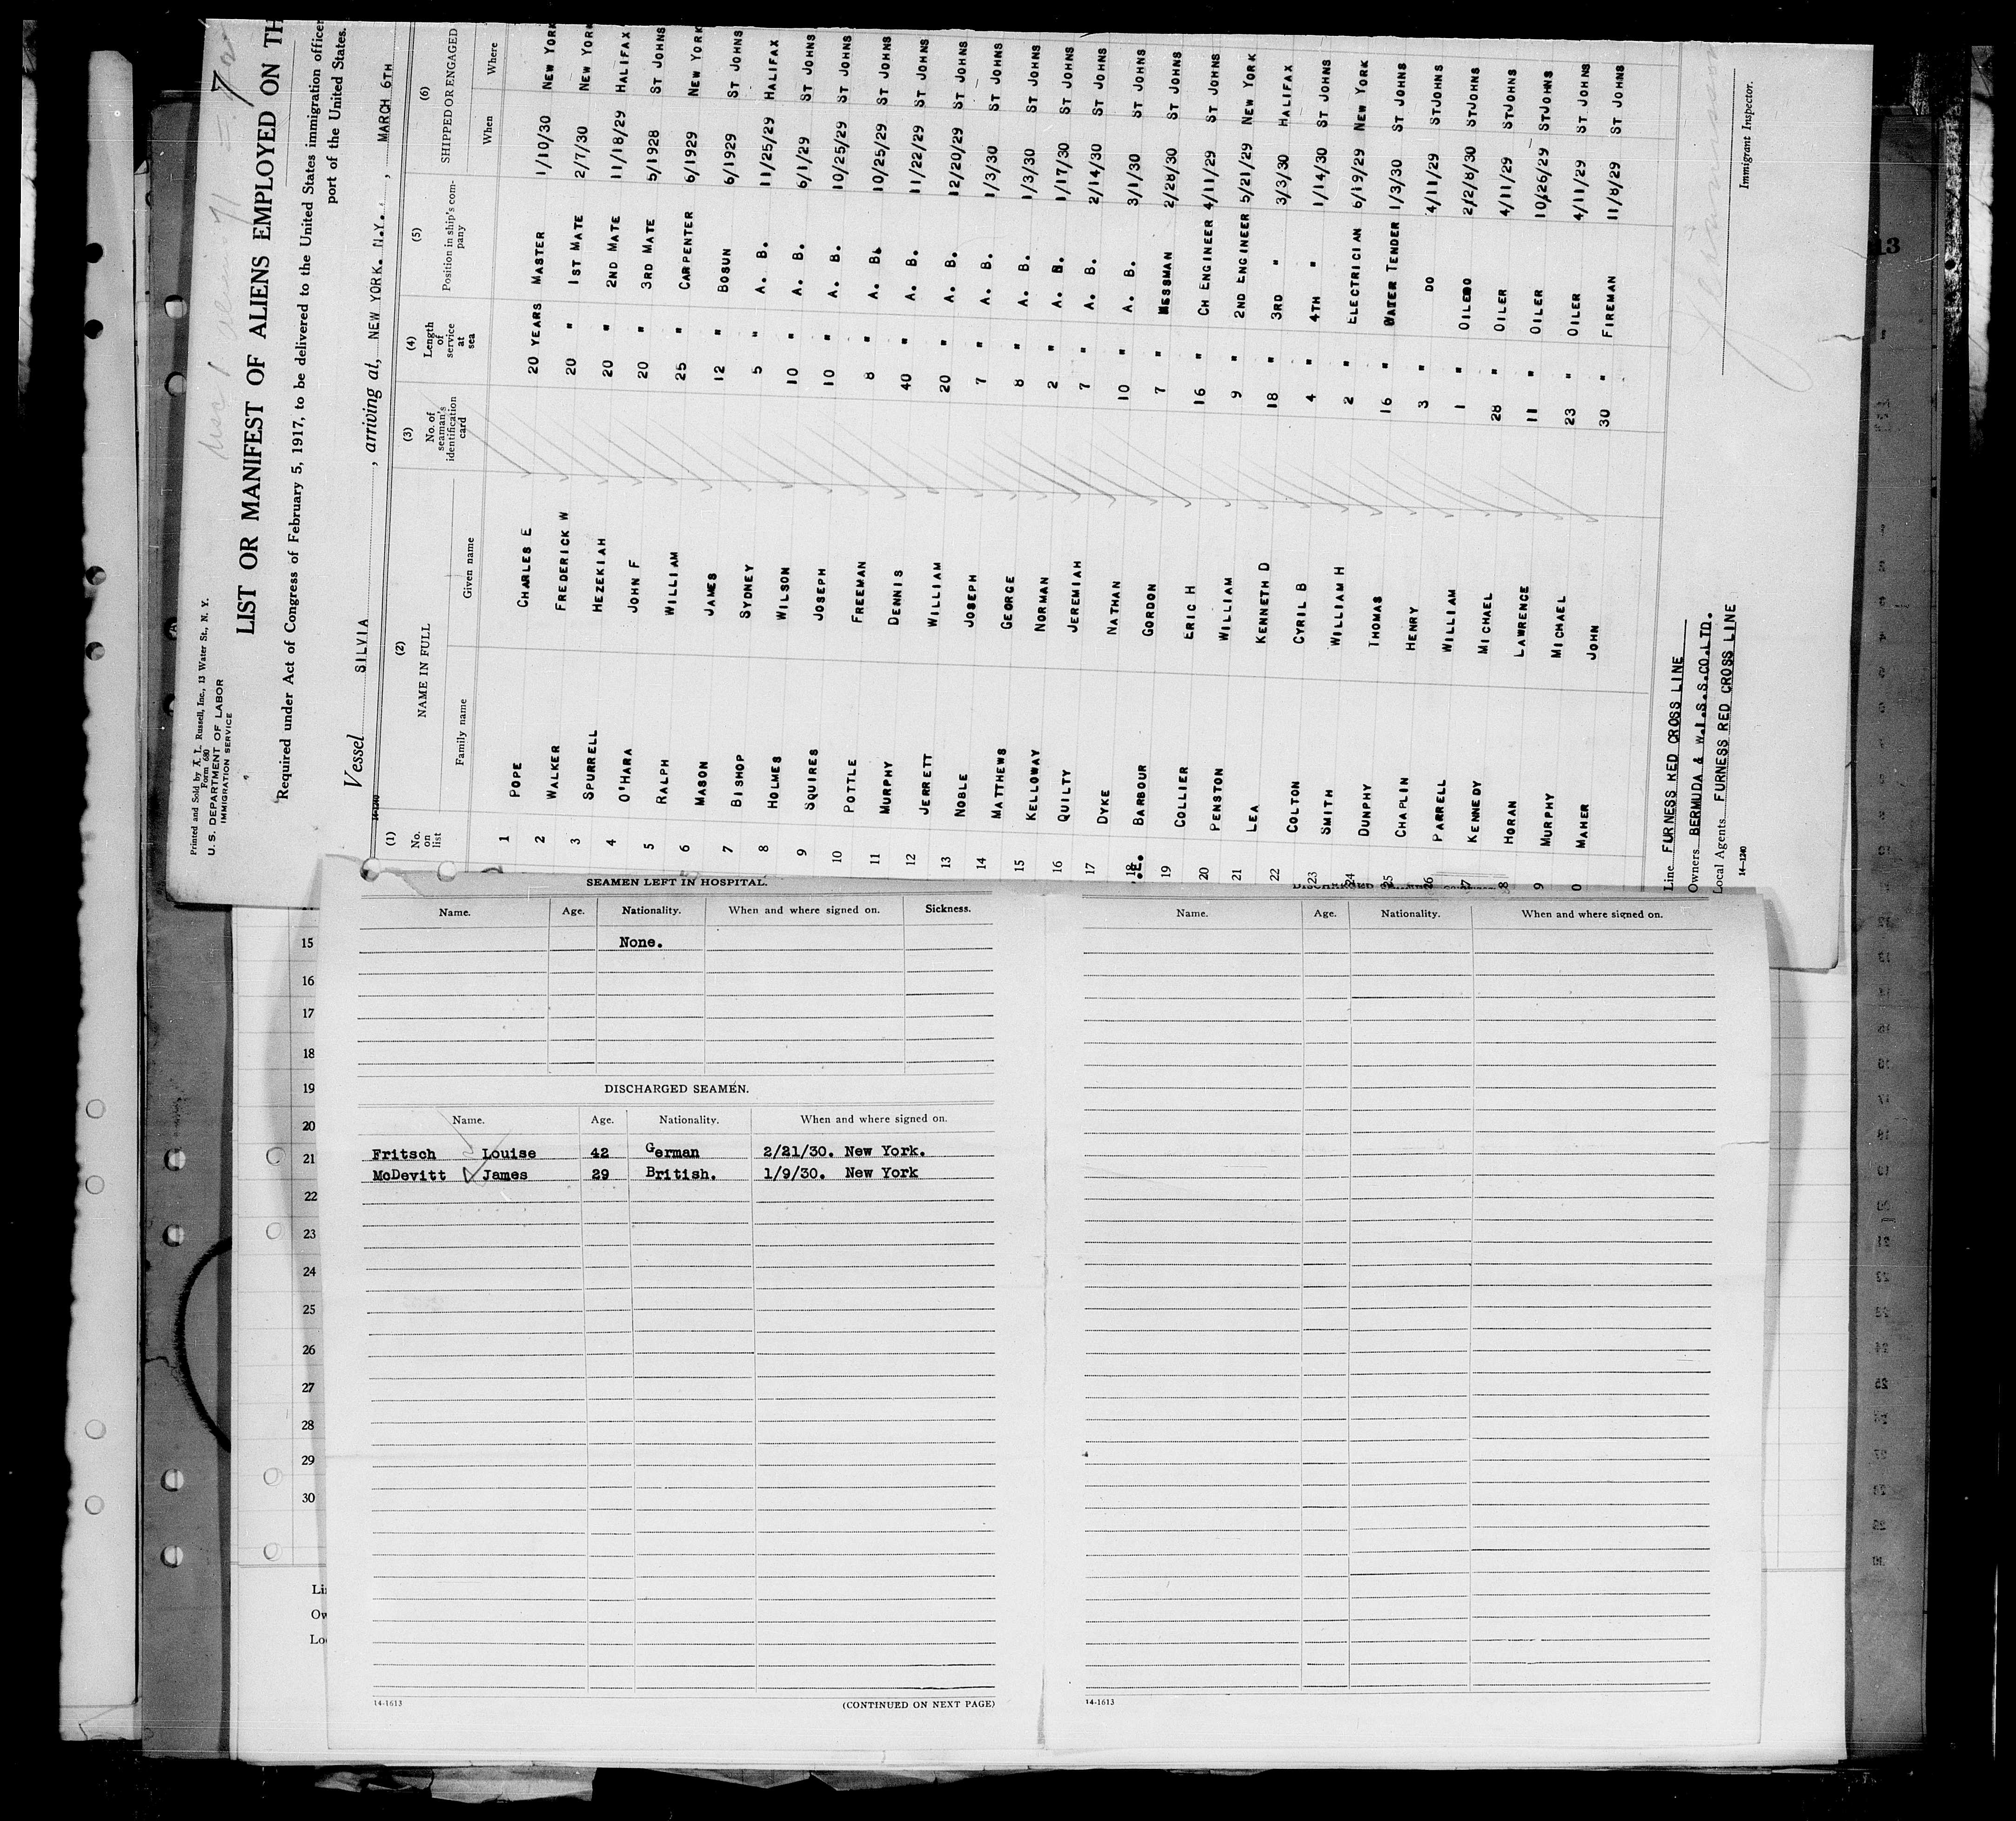 Printed and Sold by A. L. Russell, Inc., 13 Water St., N. Y.
Form 680
U. S. DEPARTMENT OF LABOR
IMMIGRATION SERVICE
LIST OR MANIFEST OF ALIENS EMPLOYED ON TH
Required under Act of Congress of February 5, 1917, to be delivered to the United States immigration officer
port of the United States.
Vessel SILVIA, arriving at, NEW YORK. N.Y., MARCH 6TH
14-1240
(1) (2) (3) (4) (5) (6)
No. on list NAME IN FULL No. of seaman's identification card Length of service at sea Position in ship's company SHIPPED OR ENGAGED
Family name Given name When Where
1 POPE CHARLES E 20 YEARS MASTER 1/10/30 NEW YORK
2 WALKER FREDERICK W 20 " 1ST MATE 2/7/30 NEW YORK
3 SPURRELL HEZEKIAH 20 " 2ND MATE 11/18/29 HALIFAX
4 O'HARA JOHN F 20 " 3RD MATE 5/1928 ST JOHNS
5 RALPH WILLIAM 25 " CARPENTER 6/1929 NEW YORK
6 MASON JAMES 12 " BOSUN 6/1929 ST JOHNS
7 BISHOP SYDNEY 5 " A. B. 11/25/29 HALIFAX
8 HOLMES WILSON 10 " A. B. 6/1/29 ST JOHNS
9 SQUIRES JOSEPH 10 " A. B. 10/25/29 ST JOHNS
10 POTTLE FREEMAN 8 " A. B. 10/25/29 ST JOHNS
11 MURPHY DENNIS 40 " A. B. 11/22/29 ST JOHNS
12 JERRETT WILLIAM 20 " A. B. 12/20/29 ST JOHNS
13 NOBLE JOSEPH 7 " A. B. 1/3/30 ST JOHNS
14 MATTHEWS GEORGE 8 " A. B. 1/3/30 ST JOHNS
15 KELLOWAY NORMAN 2 " A. B. 1/17/30 ST JOHNS
16 QUILTY JEREMIAH 7 " A. B. 2/14/30 ST JOHNS
17 DYKE NATHAN 10 " A. B. 3/1/30 ST JOHNS
18 BARBOUR GORDON 7 " MESSMAN 2/28/30 ST JOHNS
19 COLLIER ERIC H 16 " CH ENGINEER 4/11/29 ST JOHNS
20 PENSTON WILLIAM 9 " 2ND ENGINEER 5/21/29 NEW YORK
21 LEA KENNETH D 18 " 3RD " 3/3/30 HALIFAX
22 COLTON CYRIL B 4 " 4TH " 1/14/30 ST JOHNS
23 SMITH WILLIAM H 2 " ELECTRICIAN 6/19/29 NEW YORK
24 DUNPHY THOMAS 16 " WATER TENDER 1/3/30 ST JOHNS
25 CHAPLIN HENRY 3 " DO 4/11/29 STJOHNS
26 PARRELL WILLIAM 1 " OILER 2/2/8/30 STJOHNS
7 KENNEDY MICHAEL 28 " OILER 4/11/29 STJOHNS
8 HORAN LAWRENCE 11 " OILER 10/26/29 STJOHNS
9 MURPHY MICHAEL 23 " OILER 4/11/29 ST JOHNS
0 MAHER JOHN 30 " FIREMAN 11/8/29 ST JOHNS
Line FURNESS RED CROSS LINE
Owners BERMUDA & W.I.S.S.CO.LTD.
Local Agents FURNESS RED CROSS LINE
14-1240
Immigrant Inspector.
SEAMEN LEFT IN HOSPITAL.
Name. Age. Nationality. When and where signed on. Sickness.
None.
DISCHARGED SEAMEN.
Name. Age. Nationality. When and where signed on.
Fritsch Louise 42 German 2/21/30. New York.
McDevitt James 29 British. 1/9/30. New York
14-1613
(CONTINUED ON NEXT PAGE)
Name. Age. Nationality. When and where signed on.
14-1613
15
16
17
18
19
20
21
22
23
24
25
26
27
28
29
30
Li
Ow
Lo
13